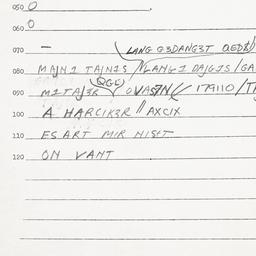 050 0
060 0
070 — LANG G3DANG3T QED
080 MAJN1 TAJN1S / LANG21 DAJG1S / GA
090 M1TAJ3R OVASIN / 17A110 / T
100 A HARCIK3R // AXCIX
110 ES ART MIR NISHT
120 ON VANT